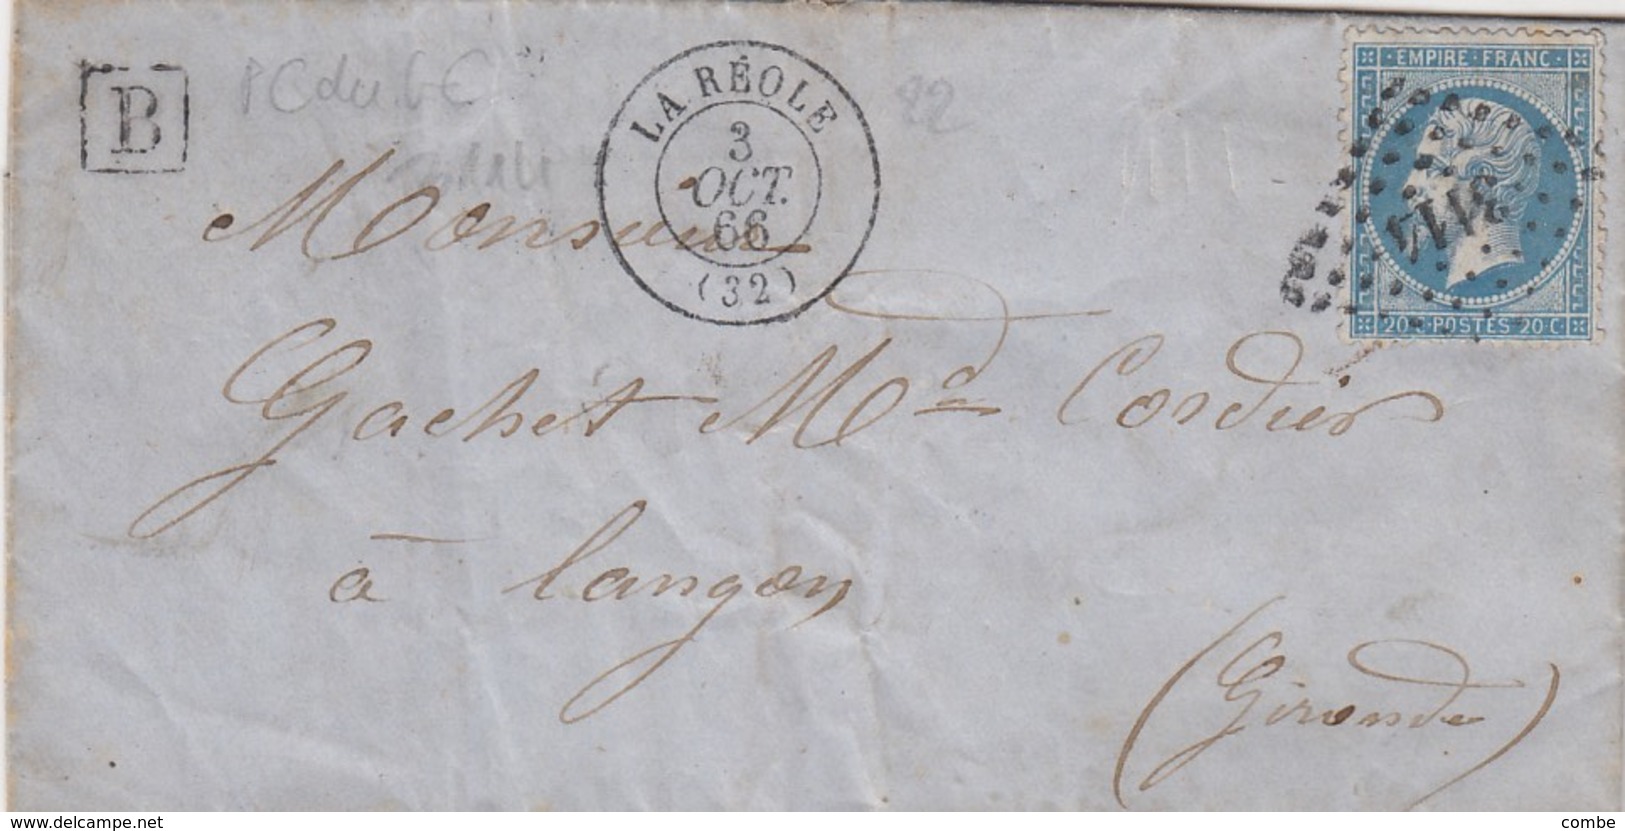 B
LA RÉOLE
3
OCT.
66
(32)
22
EMPIRE FRANC
20 C POSTES 20 C
Monsieur
Gachet Md Cordier
à Langon
(Gironde)
www.delcampe.net
combe